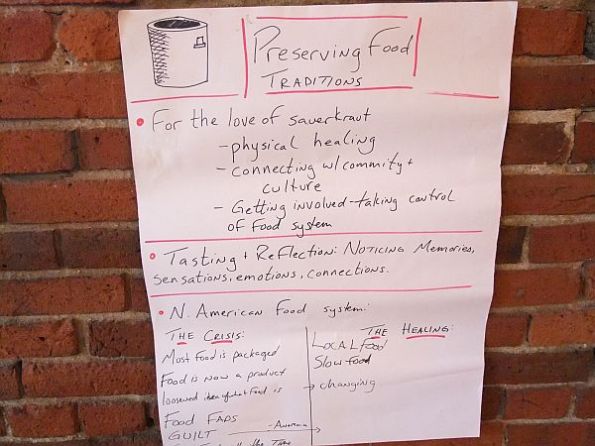 Preserving Food
TRADITIONS
• For the love of sauerkraut
- physical healing
- connecting w/ commity +
culture
- Getting involved - taking control
of food system
• Tasting + Reflection: Noticing Memories,
sensations, emotions, connections.
• N. American Food system:
THE CRISIS:
Most food is packaged
Food is now a product
loosened idea of what food is
FOOD FADS
GUILT
THE HEALING:
LOCAL food
Slow food
→ changing